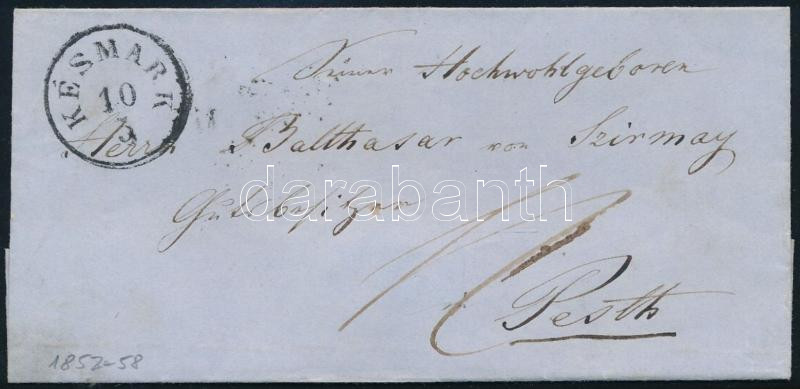 KÉSMARK
10
Seiner Hochwohlgeboren
Herrn Balthasar von Szirmay
Gutsbesitzer
Pesth
1852-58
darabanth